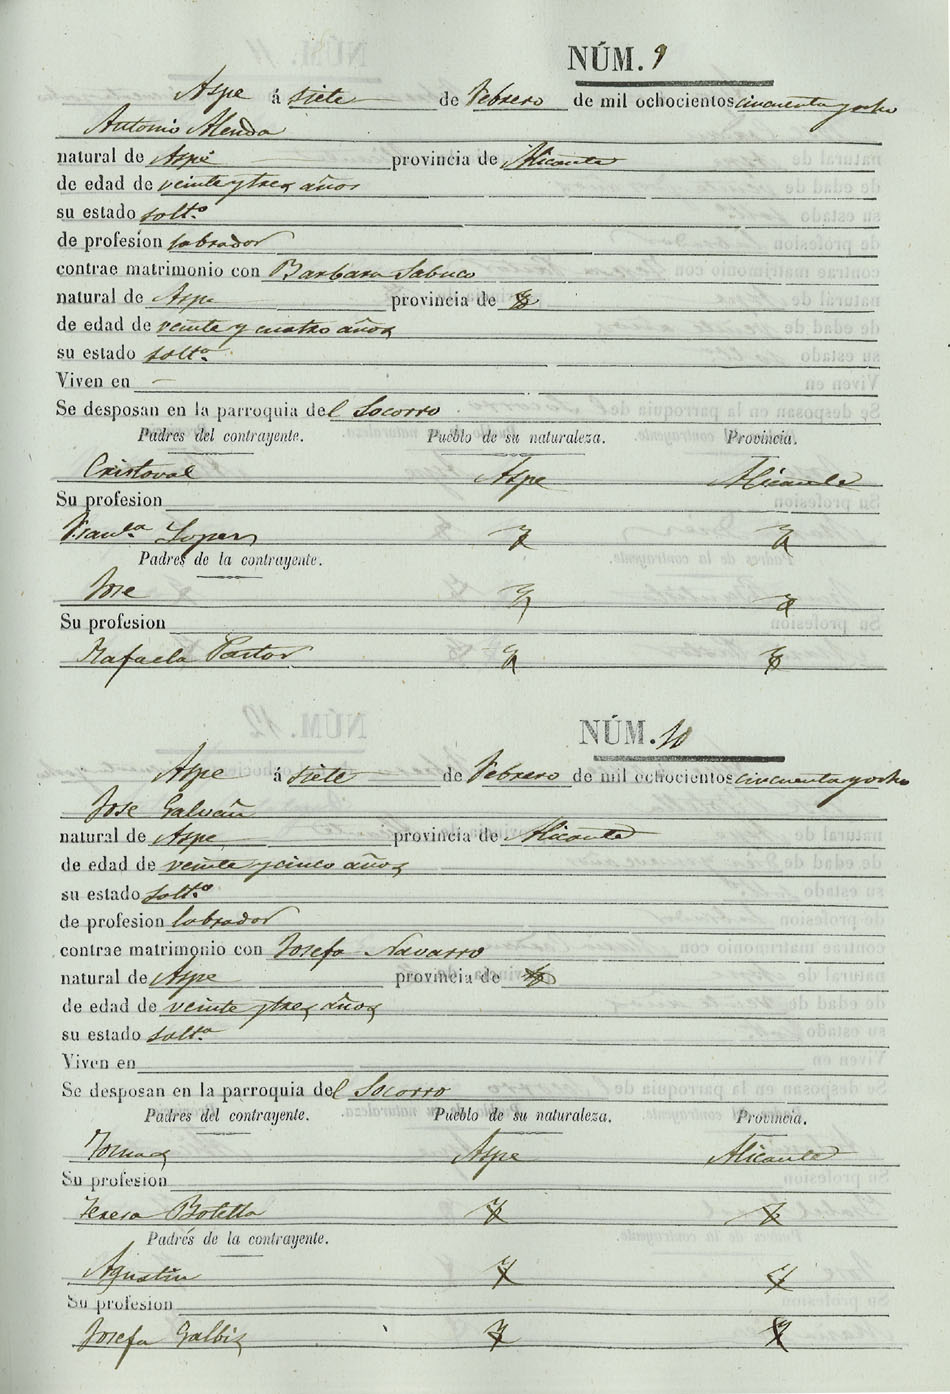 NÚM. 9
Aspe á siete de Febrero de mil ochocientos cincuenta y ocho
Antonio Alenda
natural de Aspe provincia de Alicante
de edad de veinte y tres años
su estado solt.º
de profesion labrador
contrae matrimonio con Barbara Sabuco
natural de Aspe provincia de
de edad de veinte y cuatro años
su estado solt.ª
Viven en —
Se desposan en la parroquia del Socorro
Padres del contrayente. Pueblo de su naturaleza. Provincia.
Cristoval Aspe Alicante
Su profesion
Lopez
Padres de la contrayente.
Jose
Su profesion
Rafaela Pastor
NÚM. 10
Aspe á siete de Febrero de mil ochocientos cincuenta y ocho
Jose Galvañ
natural de Aspe provincia de Alicante
de edad de veinte y cinco años
su estado solt.º
de profesion labrador
contrae matrimonio con Josefa Navarro
natural de Aspe provincia de
de edad de veinte y tres años
su estado solt.ª
Viven en
Se desposan en la parroquia del Socorro
Padres del contrayente. Pueblo de su naturaleza. Provincia.
Tomas Aspe Alicante
Su profesion
Teresa Botella
Padres de la contrayente.
Agustin
Su profesion
Josefa Galbis